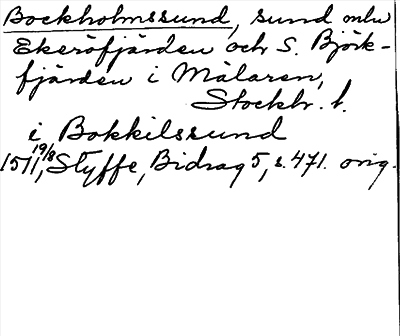 Bockholmssund, sund mlu
Ekeröfjärden och S. Björk-
fjärden i Mälaren,
Stockh. l.
i Bokkilssund
1511 19/8, Styffe, Bidrag 5, s. 471. orig.